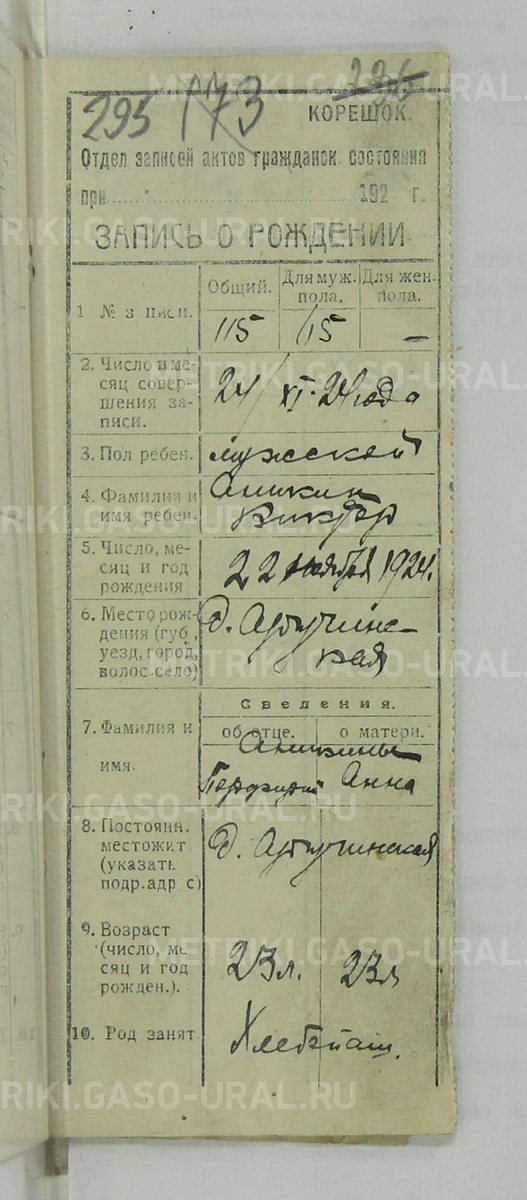 295 173 236
КОРЕШОК.
Отдел записей актов гражданск. состояния
при 192 г.
ЗАПИСЬ О РОЖДЕНИИ
1 № з писи.
Общий. Для муж. пола. Для жен. пола.
115 15 —
2. Число и ме-
сяц совер-
шения за-
писи.
24/XI-24 года
3. Пол ребен.
мужской
4. Фамилия и
имя ребен.
Аникин
Виктор
5. Число, ме-
сяц и год
рождения
22 ноября 1924.
6. Место рож-
дения (губ.,
уезд, город,
волос. село)
Сведения.
7. Фамилия и
имя.
об отце. о матери.
Аникины
Порфирий Анна
8. Постоянн.
местожит.
(указать
подр. адр с)
9. Возраст
(число, ме
сяц и год
рожден.).
23 л. 23 л
10. Род занят.
Хлебопаш.
METRIKI.GASO-URAL.RU